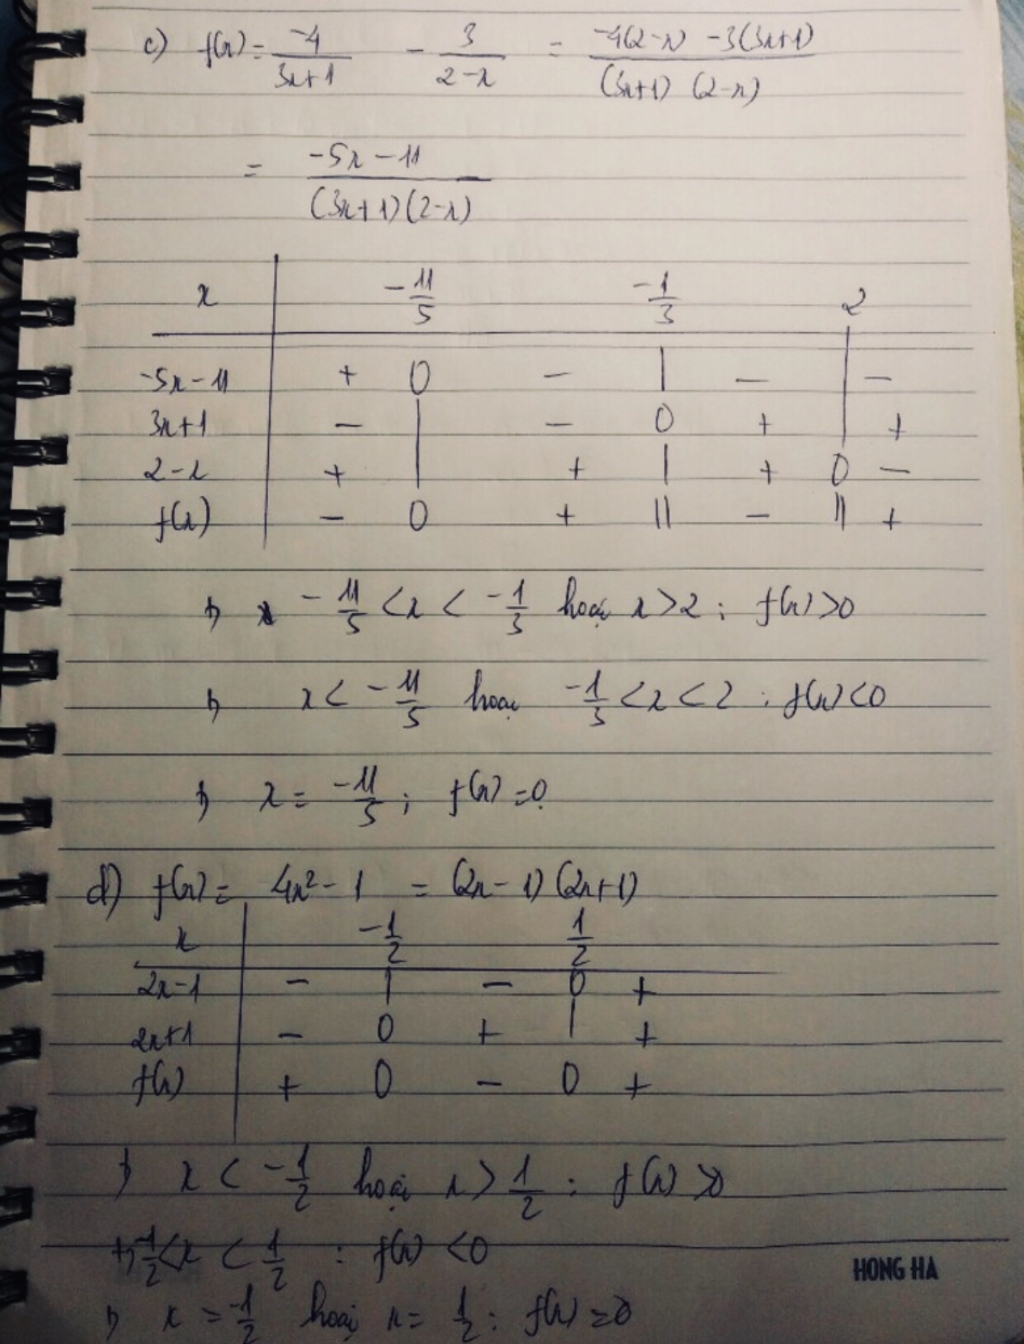 c) f(x) = -4/(3x+1) - 3/(2-x) = (-4(2-x) -3(3x+1))/((3x+1) (2-x))
= (-5x-11)/((3x+1)(2-x))
x | -11/5 -1/3 2
-5x-11 | + 0 - | - | -
3x+1 | - | - 0 + | +
2-x | + | + | + 0 -
f(x) | - 0 + || - || +
-11/5 < x < -1/3 hoặc x>2 : f(x) >0
x < -11/5 hoặc -1/3 < x < 2 : f(x) <0
x = -11/5 ; f(x) =0
d) f(x) = 4x² - 1 = (2x-1)(2x+1)
x | -1/2 1/2
2x-1 | - | - 0 +
2x+1 | - 0 + | +
f(x) | + 0 - 0 +
x < -1/2 hoặc x > 1/2 : f(x) >0
-1/2 < x < 1/2 : f(x) <0
HONG HA
x = -1/2 hoặc x = 1/2 : f(x) =0